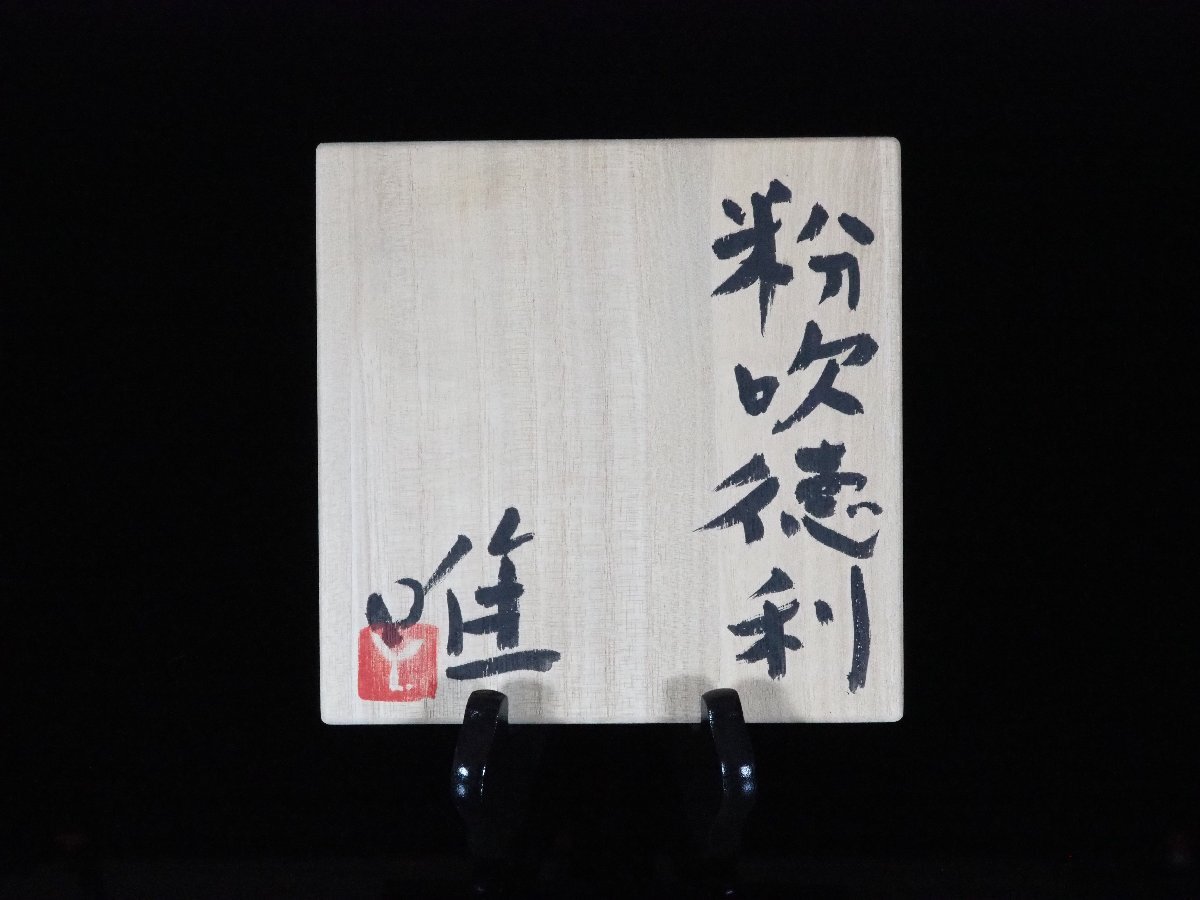 粉吹徳利
唯